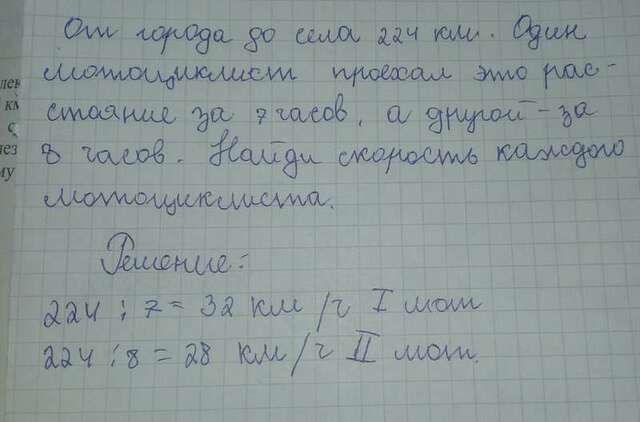 От города до села 224 км. Один
мотоциклист проехал это рас-
стояние за 7 часов, а другой - за
8 часов. Найди скорость каждого
мотоциклиста.
Решение:
224 : 7 = 32 км/ч I мот
224 : 8 = 28 км/ч II мот.